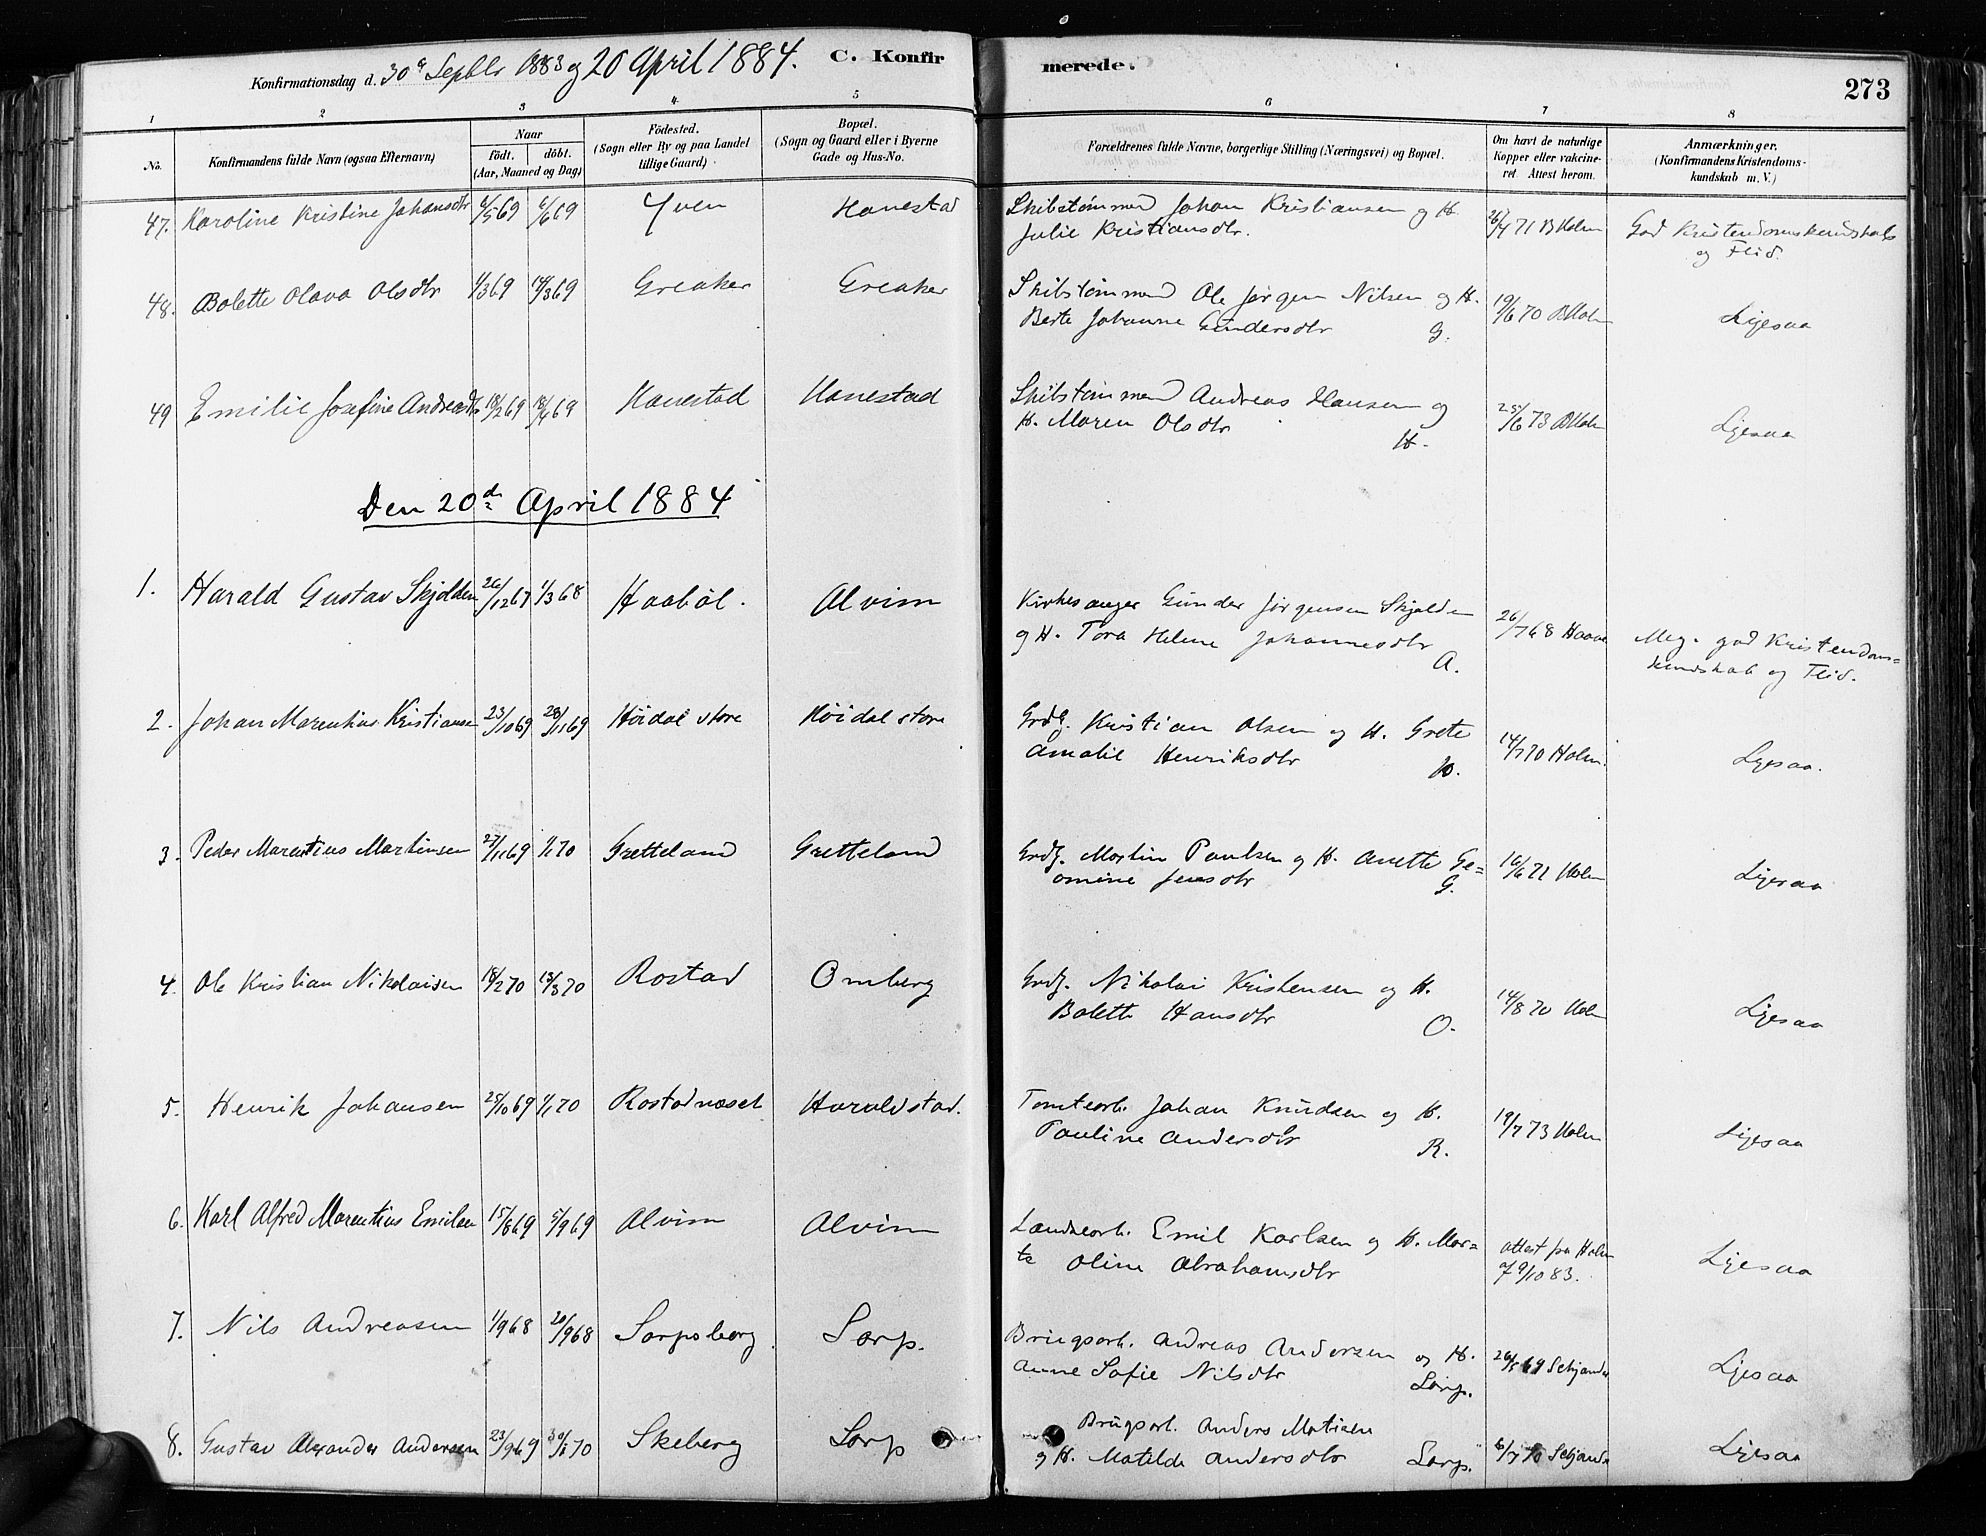 Konfirmationsdag d. 30d Septbr 1883 og 20 April 1884. C. Konfir merede. 273
1 2 3 4 5 6 7 8
No. Konfirmandens fulde Navn (ogsaa Efternavn) Naar födt. döbt. (Aar, Maaned og Dag) Födested. (Sogn eller By og paa Landet tillige Gaard) Bopæl. (Sogn og Gaard eller i Byerne Gade og Hus-No. Forældrenes fulde Navne, borgerlige Stilling (Næringsvei) og Bopæl. Om havt de naturlige Kopper eller vakcineret Attest herom. Anmærkninger. (Konfirmandens Kristendomskundskab m. V.)
47. Karoline Kristine Johansdtr 6/5 69 6/6 69 Yven Hanestad Skibstømmermd Johan Kristiansen og H. 26/4 71 BHolm God Kristendomskundskab
Julie Kristiansdtr. og Flid.
48. Bolette Olava Olsdtr 1/3 69 19/3 69 Greaker Greaker Skibstømmermd Ole Jørgen Nilsen og H. 19/6 70 BHolm Ligesaa
Berte Johanne Gundersdtr G.
49 Emilie Josefine Andreasdtr 18/2 69 18/4 69 Hanestad Hanestad Skibstømmermd Andreas Hansen og 25/6 73 BHolm Ligesaa
H. Maren Olsdtr H.
Den 20de April 1884
1. Harald Gustav Skjolden 26/12 67 1/3 68 Haabøl. Alvim Kirkesanger Gunder Jørgensen Skjolden 26/7 68 Haave Meg. god Kristendoms=
og H. Tora Helene Johannesdtr A. kundskab og Flid.
2. Johan Marentius Kristiansen 23/10 69 28/11 69 Høidal store Høidal store Grdg. Kristian Olsen og H. Grete 14/7 70 Holm. Ligesaa.
Amalie Henriksdtr H.
3. Peder Marentius Martinsen 27/11 69 1/1 70 Gretteland Gretteland Grdg. Martin Paulsen og H. Anette Ge= 16/6 71 Holm Ligesaa
omine Jensdtr G.
4. Ole Kristian Nikolaisen 18/2 70 13/3 70 Rostad Omberg Grdg. Nikolai Kristensen og H. 14/8 70 Holm Ligesaa
Bolette Hansdtr O.
5. Henrik Johansen 25/10 69 1/1 70 Rostadnæset Haraldstad. Tomtearb. Johan Knudsen og H. 19/7 73 Holm Ligesaa
Pauline Andersdtr R.
6. Karl Alfred Marentius Emilsen 15/8 69 5/9 69 Alvim Alvim Landsearb. Emil Karlsen og H. Mar= attest fra Holm Ligesaa
te Oline Abrahamsdtr af 9/10 83.
7. Nils Andreasen 1/9 68 20/9 68 Sarpsborg Sarp. Brugsarb. Andreas Andersen og H. 26/5 69 Schjander Ligesaa
Anne Sofie Nilsdtr Sarp.
8. Gustav Alexander Andersen 23/9 69 30/1 70 Skeberg Sarp Brugsarb. Anders Matisen 6/7 70 Schjander Ligesaa
og H. Matilde Andersdtr Sarp.